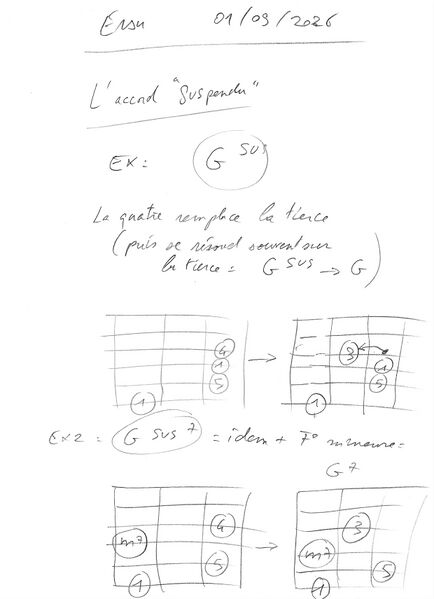 Ersu 01/09/2026
L'accord "Suspendu"
EX = G SUS
La quarte remplace la tierce
(puis se résoud souvent sur
la tierce = G SUS → G)
4 → 3
1 1
5 5
1 1
EX2 = G SUS 7 = idem + 7° mineure =
G7
4 → 3
m7 m7
5 5
1 1